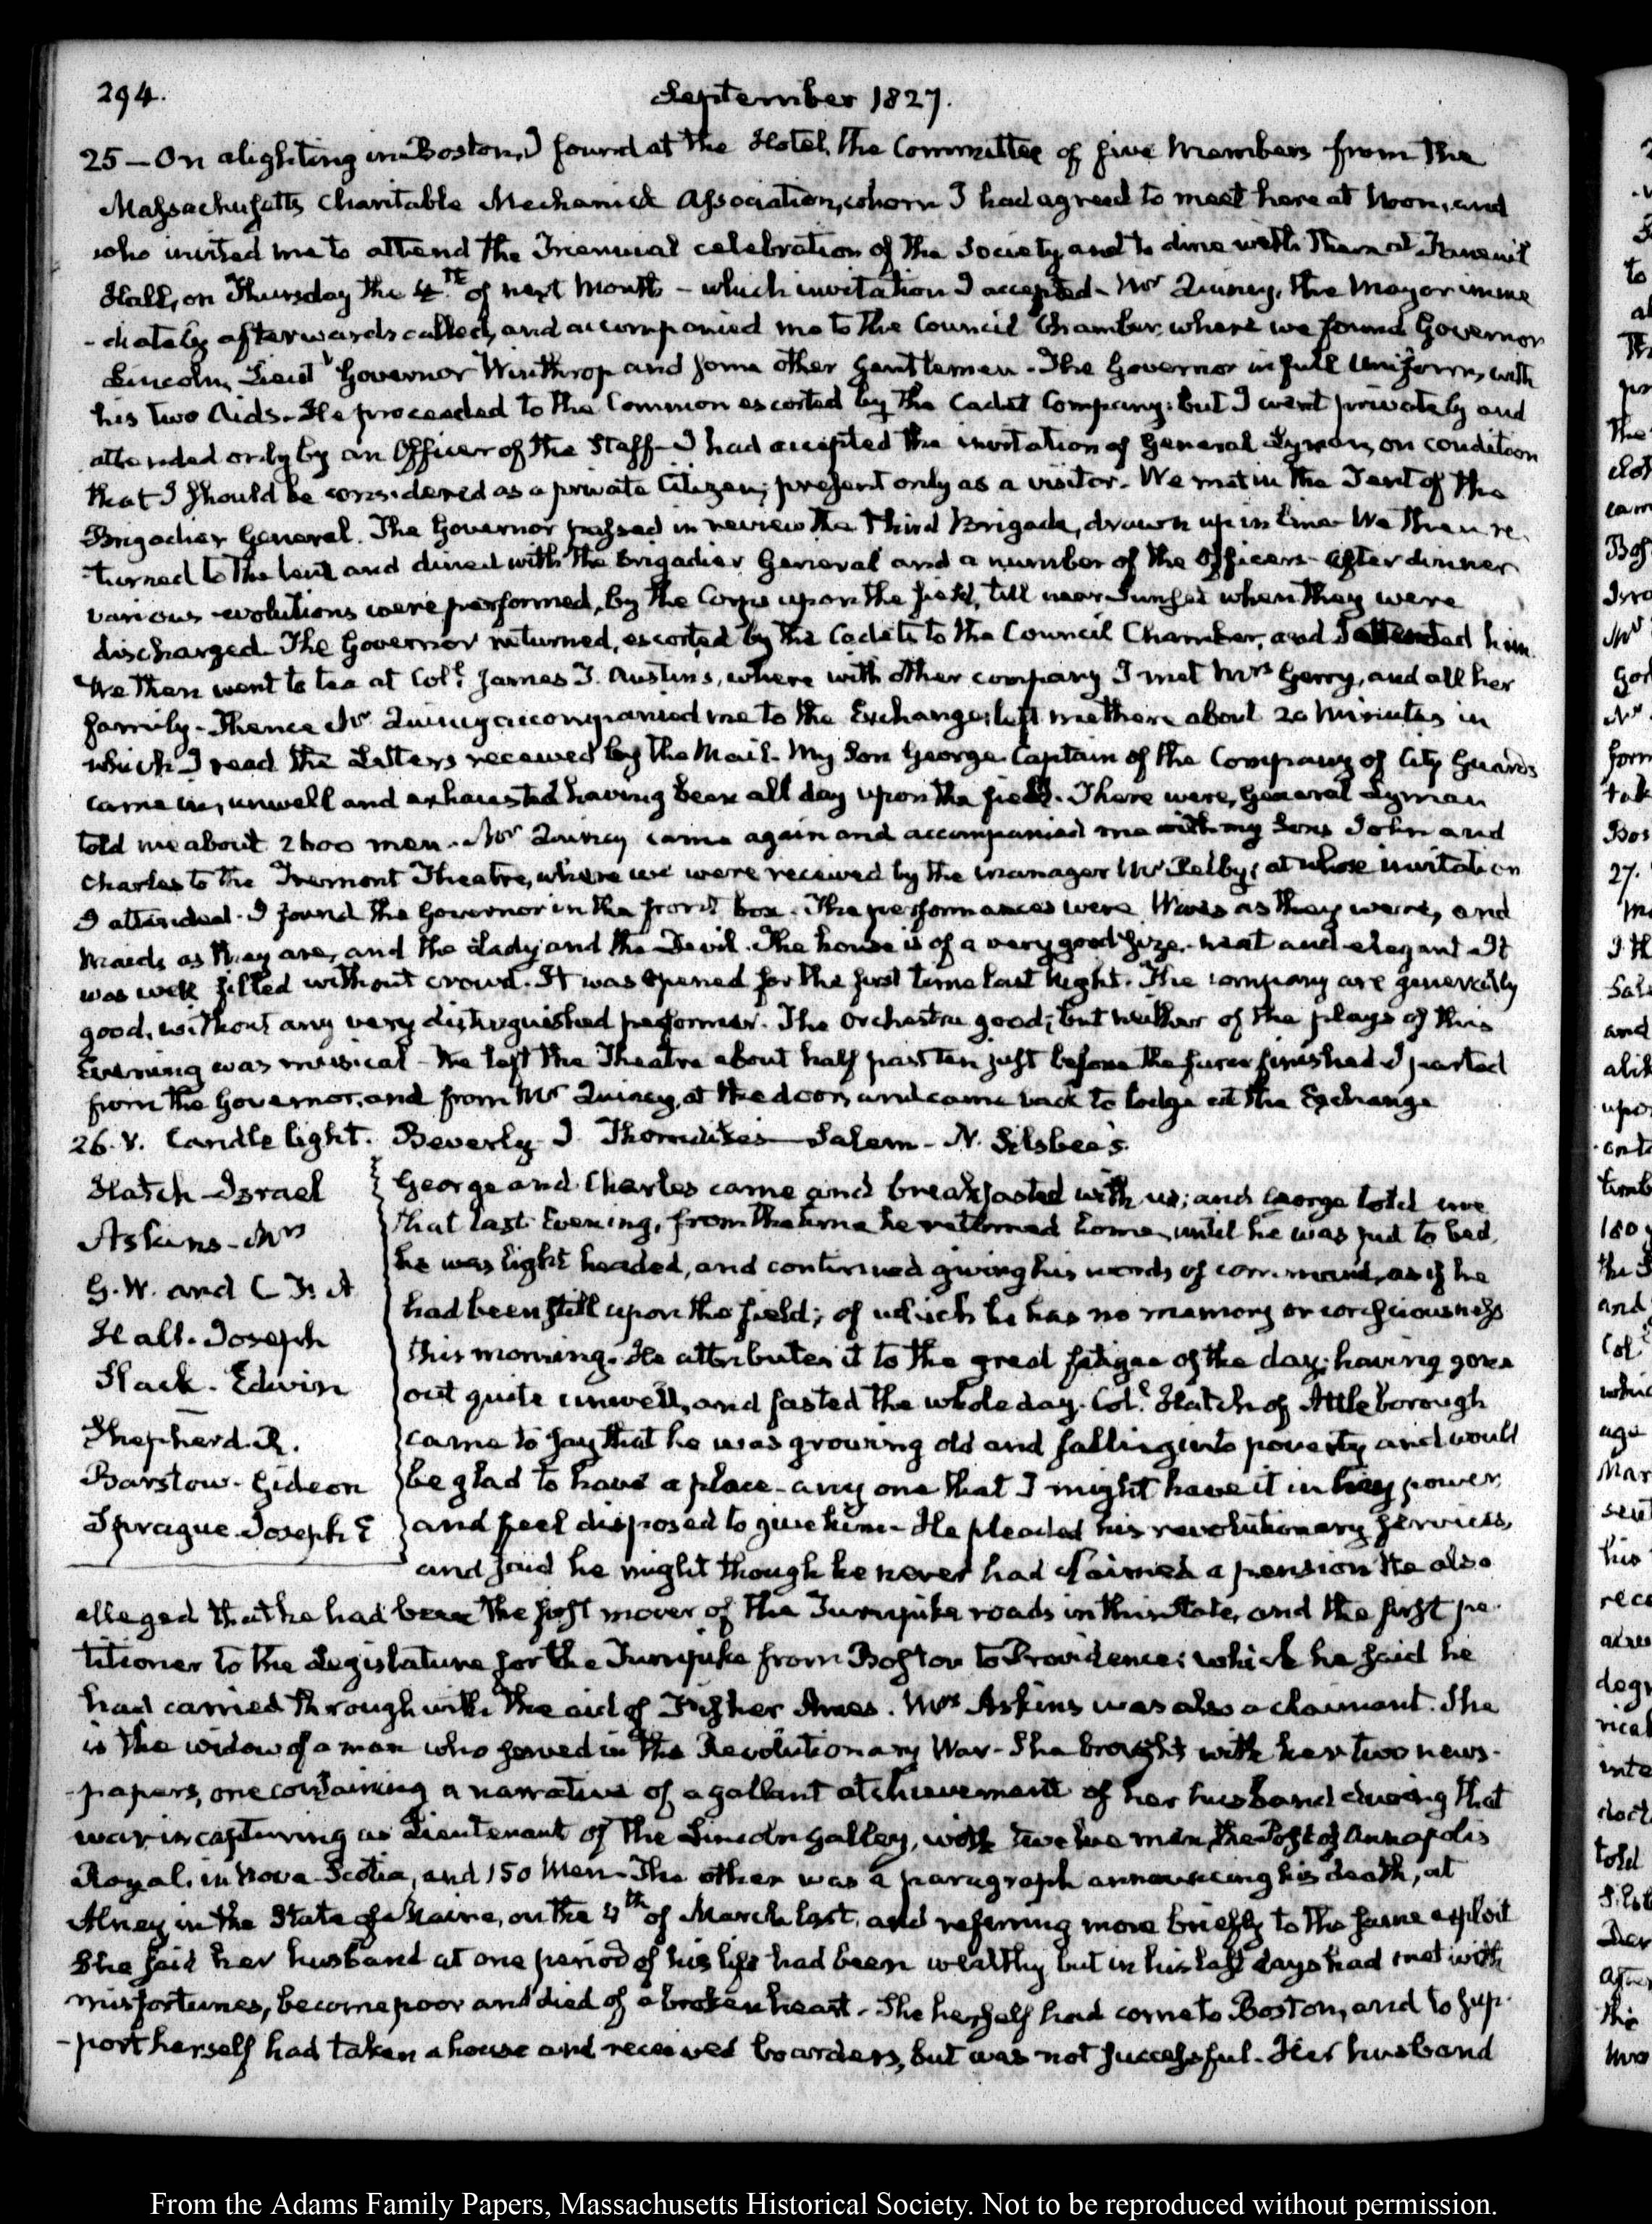 294.
September 1827.
25 — On alighting in Boston, I found at the Hotel, the Committee of five Members from the
Massachusetts Charitable Mechanick Association, whom I had agreed to meet here at Noon, and
who invited me to attend the Triennial celebration of the Society, and to dine with them at Faneuil
Hall, on Thursday the 4.th of next Month — which invitation I accepted — Mr Quincy, the Mayor imme
-diately afterwards called, and accompanied me to the Council Chamber, where we found Governor
Lincoln, Lieutt Governor Winthrop and some other Gentlemen. The Governor in full Uniform, with
his two Aids. He proceeded to the Common escorted by the Cadet Company: but I went privately and
attended only by an Officer of the Staff — I had accepted the invitation of General Lyman, on condition
that I should be considered as a private Citizen; present only as a visitor. We met in the Tent of the
Brigadier General. The Governor passed in review the Third Brigade, drawn up in Line. We then re
turned to the tent and dined with the Brigadier General and a number of the Officers — After dinner
various evolutions were performed, by the Corps upon the field, till near Sunset when they were
discharged. The Governor returned, escorted by the Cadets to the Council Chamber, and I attended him.
We then went to tea at Coll James T. Austins, where with other company I met Mrs Gerry, and all her
family. Thence Mr Quincy accompanied me to the Exchange; left me there about 20 Minutes in
which I read the Letters received by the Mail. My Son George Captain of the Company of City Guards
came in, unwell and exhausted having been all day upon the field. There were, General Lyman
told me about 2600 men. Mr Quincy came again and accompanied me with my Sons John and
Charles to the Tremont Theatre, where we were received by the Manager Mr Pelby; at whose invitation
I attended. I found the Governor in the front box. The performances were Wives as they were, and
Maids as they are, and the Lady and the Devil. The house is of a very good size, neat and elegant. It
was well filled without crowd. It was opened for the first time last Night. The company are generally
good, without any very distinguished performer. The Orchestra good; but neither of the plays of this
Evening was musical — We left the Theatre about half past ten just before the farce finished I parted
from the Governor, and from Mr Quincy, at the door, and came back to lodge at the Exchange
26. V. Candle light. Beverly I. Thorndikes — Salem — N. Silsbee's.
Hatch - Israel
Askins - Mrs
G. W. and C. F. A
Hall. Joseph
Slack. Edwin
Shepherd. R.
Barstow. Gideon
Sprague Joseph E
George and Charles came and breakfasted with us; and George told me
that last Evening, from the time he returned home, until he was put to bed,
he was light headed, and continued giving his words of command, as if he
had been still upon the field; of which he has no memory or consciousness
this morning. He attributes it to the great fatigue of the day; having gone
out quite unwell, and fasted the whole day. Coll Hatch of Attleborough
came to say that he was growing old and falling into poverty and would
be glad to have a place — any one that I might have it in my power,
and feel disposed to give him. He pleaded his revolutionary services,
and said he might though he never had claimed a pension He also
alleged that he had been the first mover of the Turnpike roads in this State, and the first pe
titioner to the Legislature for the Turnpike from Boston to Providence; which he said he
had carried through with the aid of Fisher Ames. Mrs Askins was also a claimant. She
is the widow of a man who served in the Revolutionary War. She brought with her two news-
-papers, one containing a narrative of a gallant atchievement of her husband during that
war in capturing as Lieutenant of the Lincoln galley, with twelve men, the Post of Annapolis
Royal, in Nova Scotia, and 150 Men. The other was a paragraph announcing his death, at
Alney in the State of Maine, on the 4th of March last, and referring more briefly to the same exploit
She said her husband at one period of his life had been wealthy but in his last days had met with
misfortunes, become poor and died of a broken heart. She herself had come to Boston, and to sup-
-port herself had taken a house and received boarders, but was not successful. Her husband
From the Adams Family Papers, Massachusetts Historical Society. Not to be reproduced without permission.